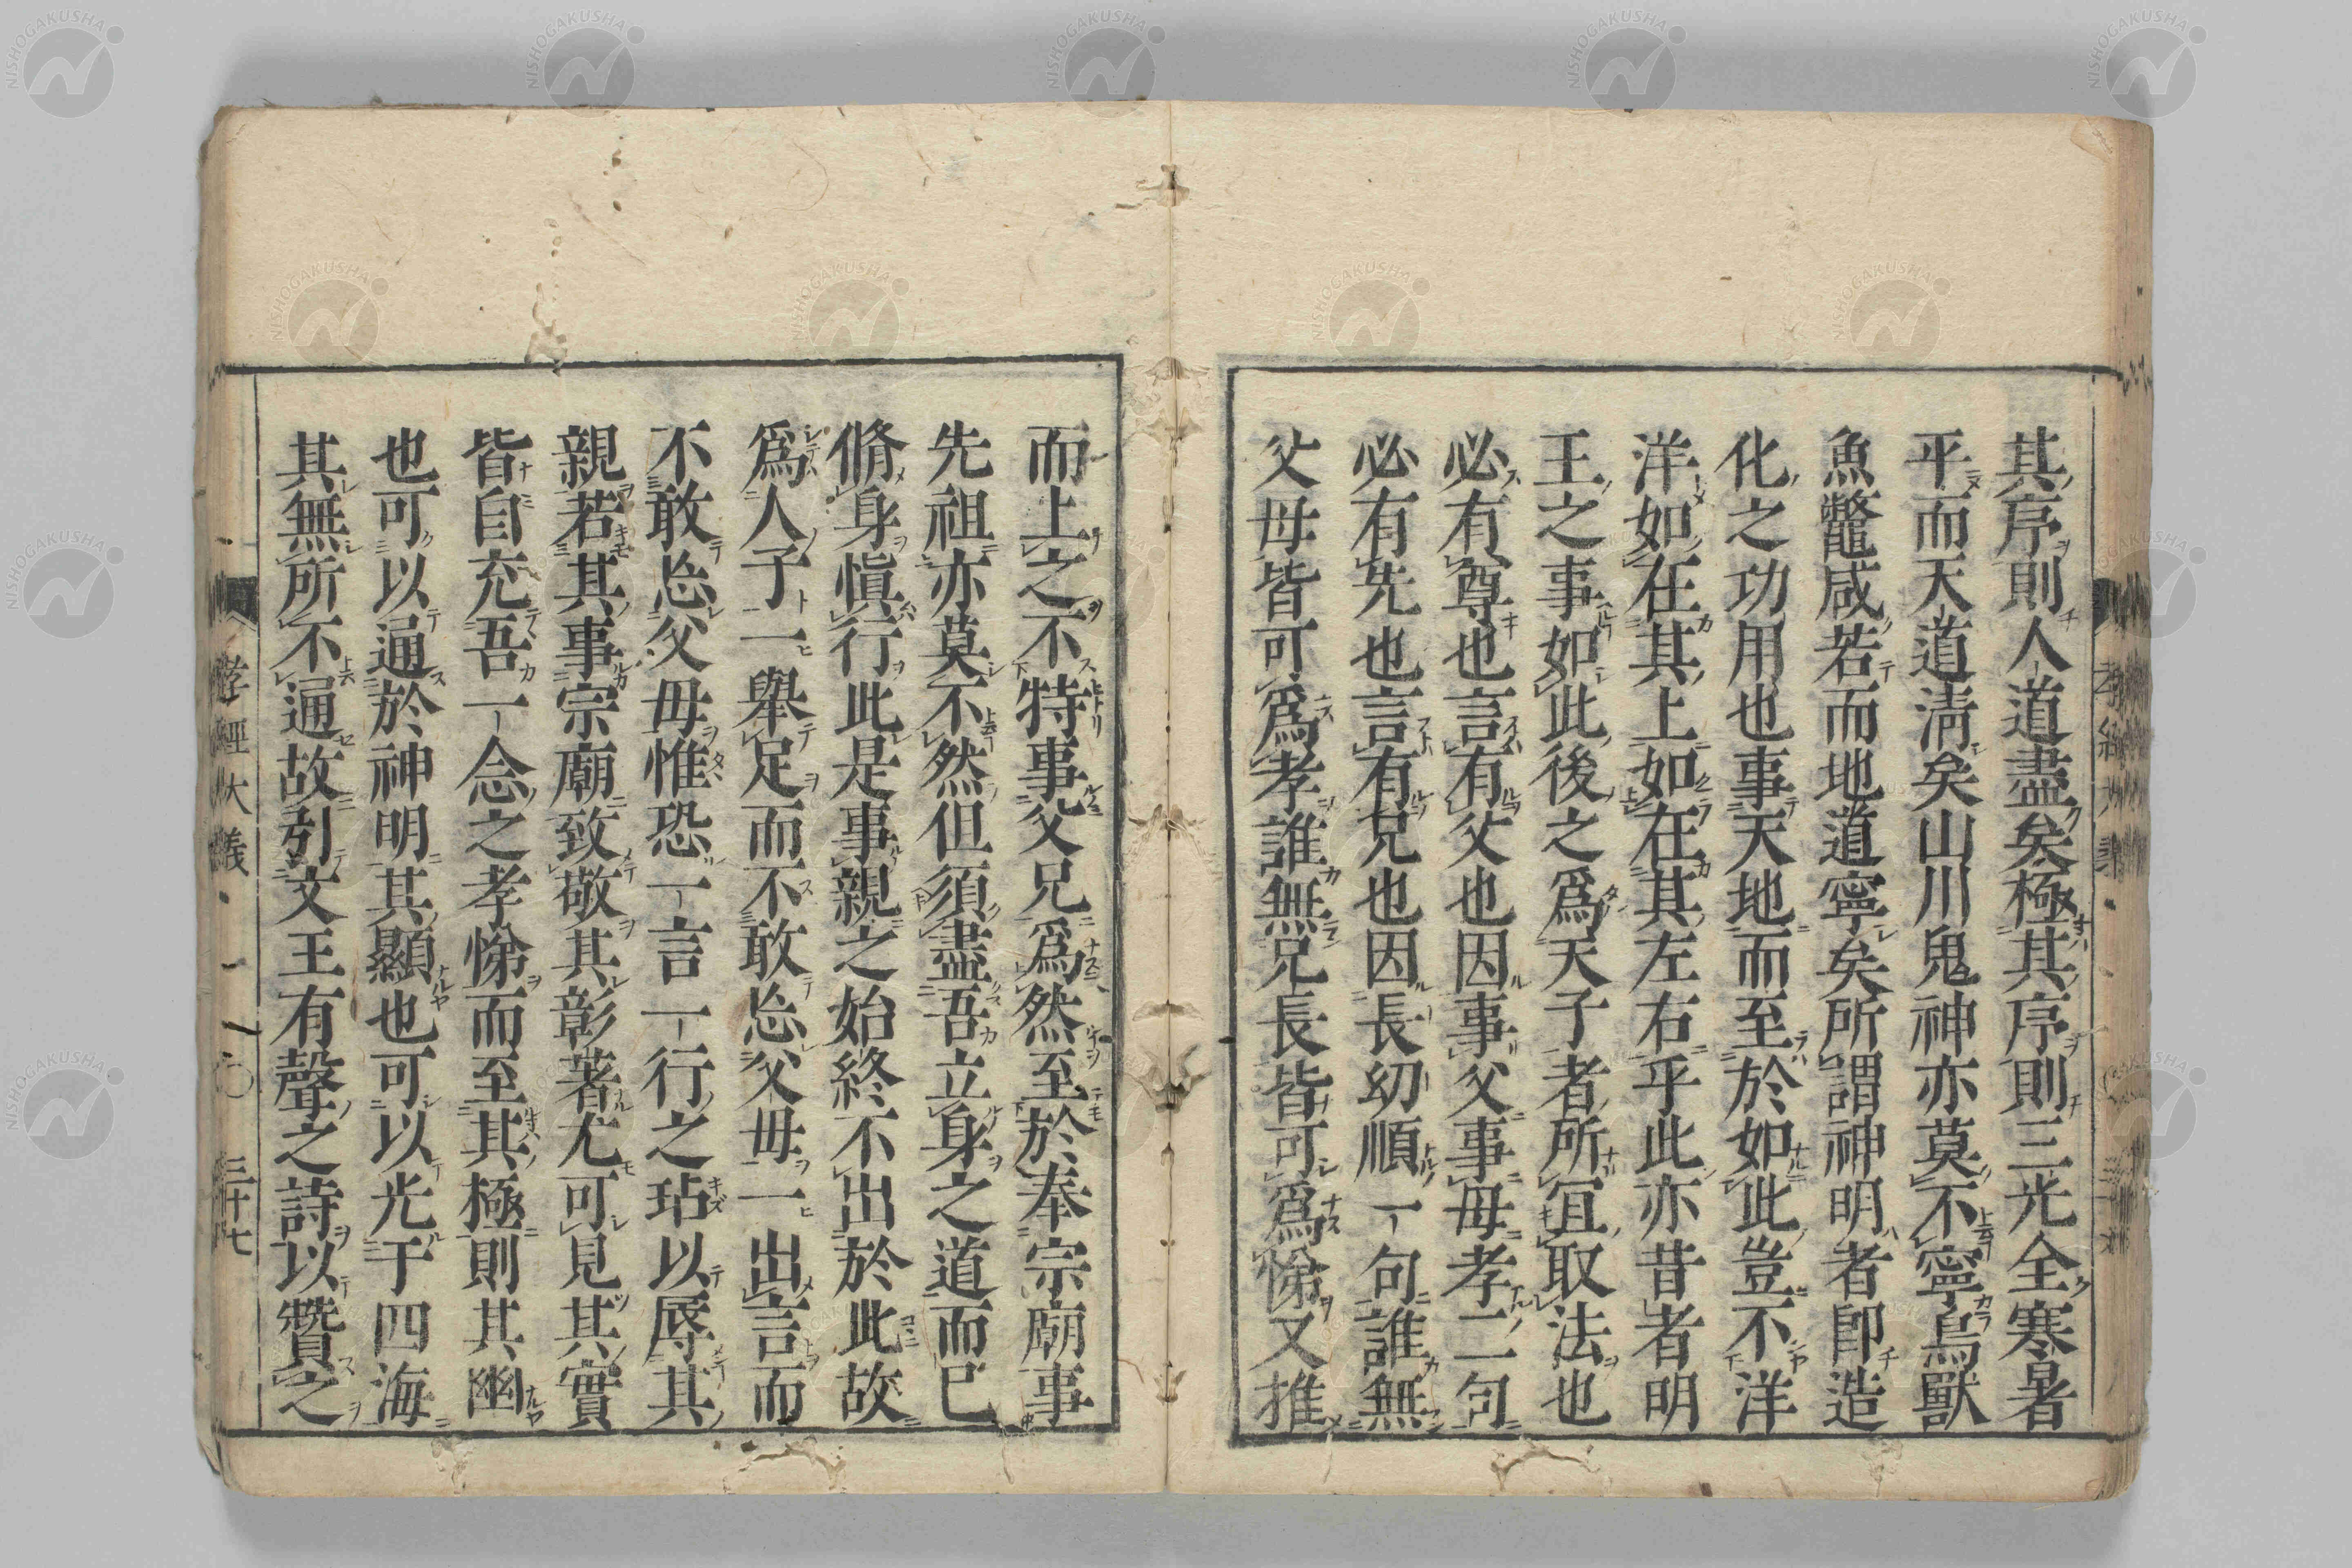 其序則人道盡矣極其序則三光全寒暑
平而天道淸矣山川鬼神亦莫不寧鳥獸
魚鼈咸若而地道寧矣所謂神明者卽造
化之功用也事天地而至於如此豈不洋
洋如在其上如在其左右乎此亦昔者明
王之事如此後之爲天子者所宜取法也
必有尊也言有父也因事父事母孝二句
必有先也言有兄也因長幼順一句誰無
父母皆可爲孝誰無兄長皆可爲悌又推
而上之不特事父兄爲然至於奉宗廟事
先祖亦莫不然但須盡吾立身之道而已
脩身愼行此是事親之始終不出於此故
爲人子一舉足而不敢忘父母一出言而
不敢忘父母惟恐一言一行之玷以辱其
親若其事宗廟致敬其彰著尤可見其實
皆自充吾一念之孝悌而至其極則其幽
也可以通於神明其顯也可以光于四海
其無所不通故引文王有聲之詩以贊之
孝經大義 三十七
NISHOGAKUSHA